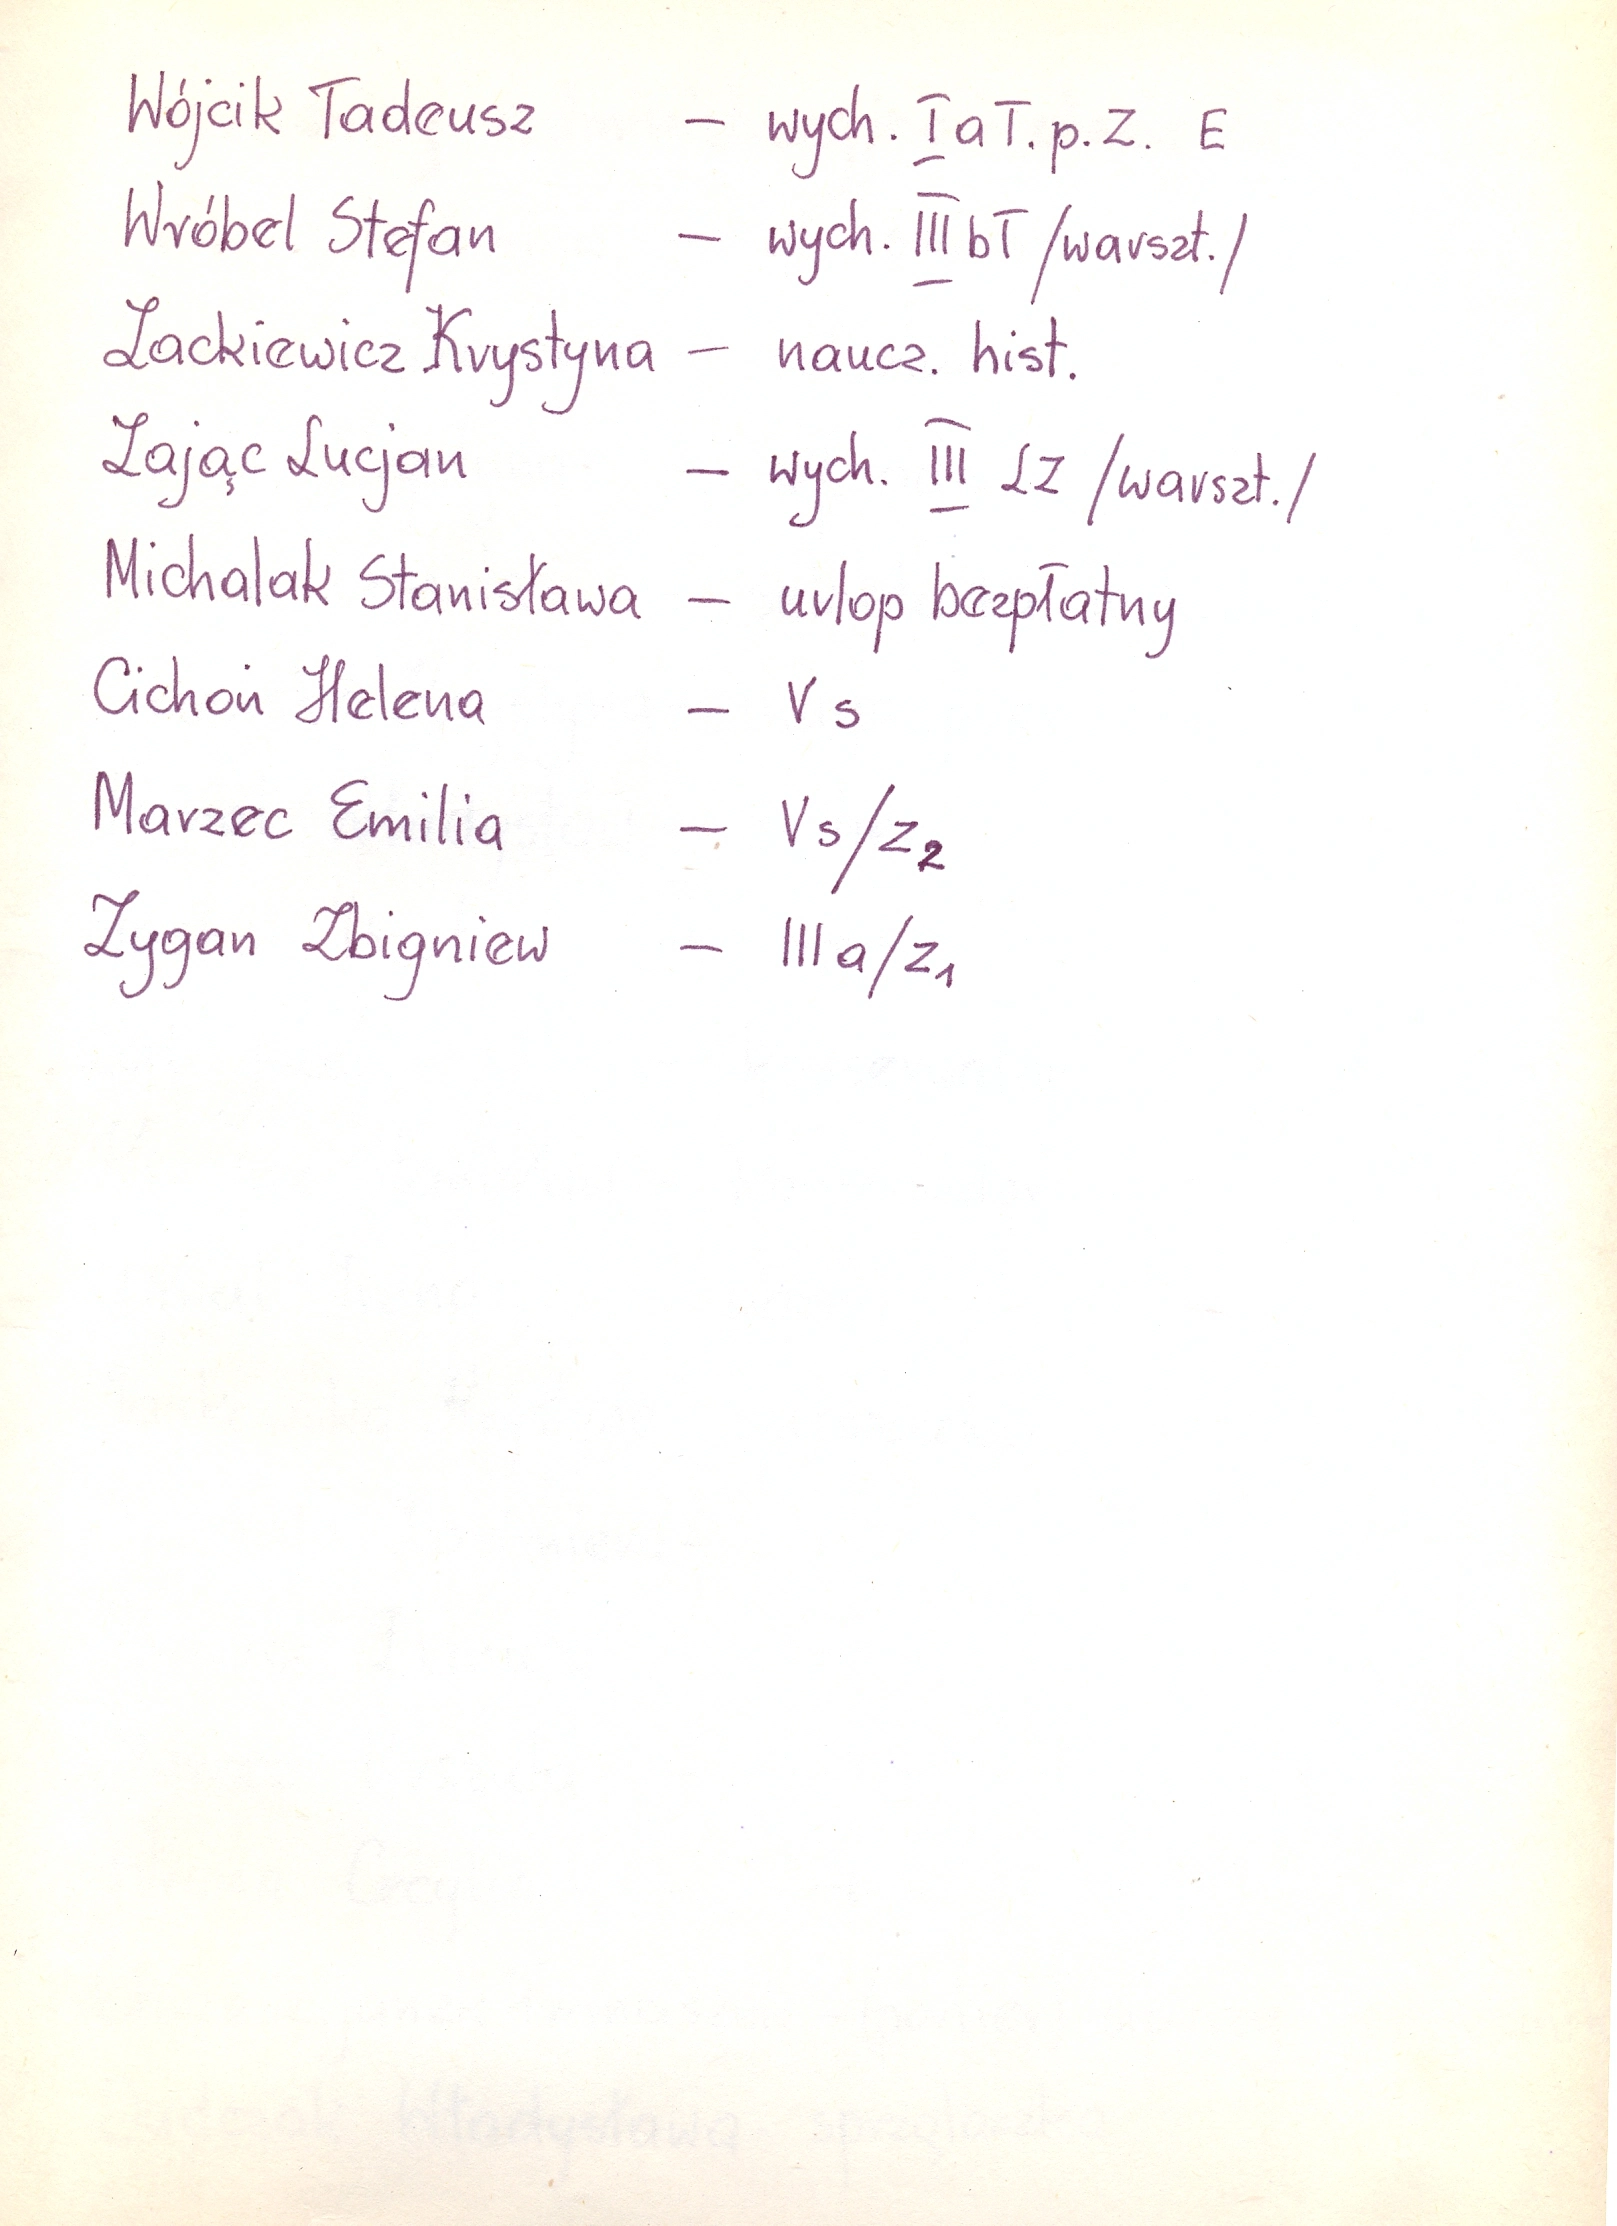 Wójcik Tadeusz – wych. I a T. p. Z. E
Wróbel Stefan – wych. III bT /warszt./
Zackiewicz Krystyna – naucz. hist.
Zając Lucjan – wych. III LZ /warszt./
Michalak Stanisława – urlop bezpłatny
Cichoń Helena – V s
Marzec Emilia – Vs/Z₂
Zygan Zbigniew – III a/Z₁